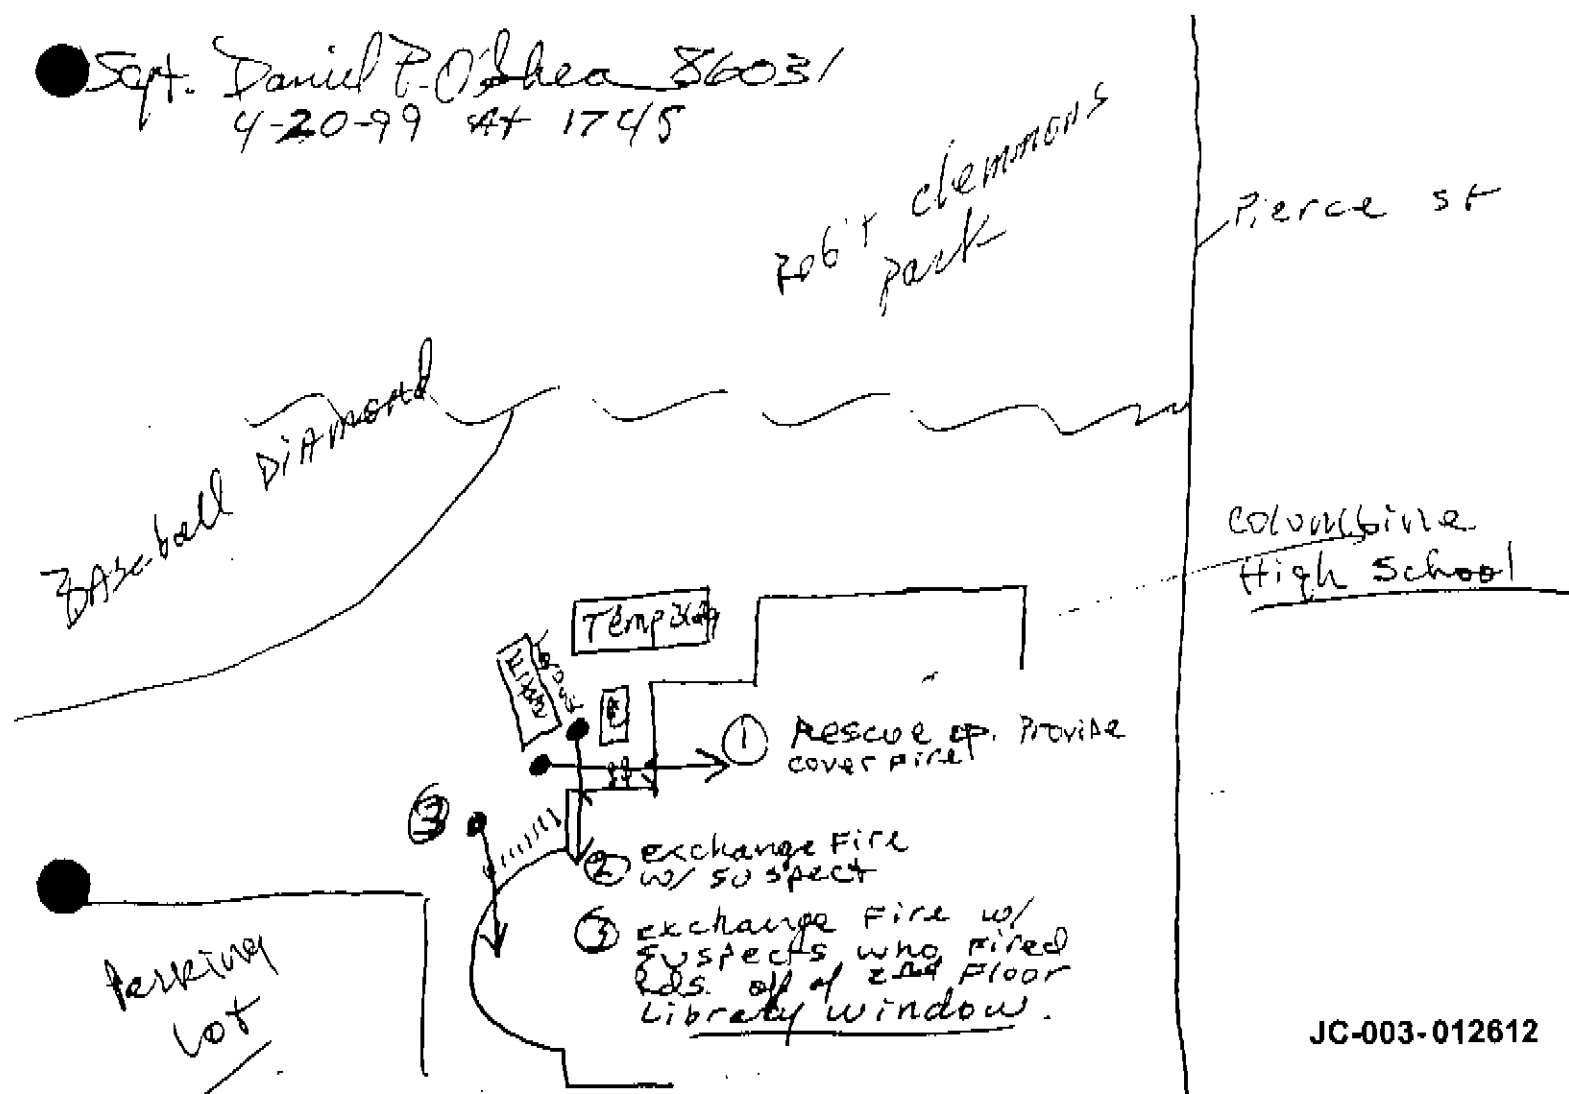 Sgt. Daniel P. O'Shea 86031
4-20-99 At 1745
Rob't clemmons
park
Pierce st
Baseball Diamond
Columbine
High School
Temp Bldg
① Rescue op. Provide
cover fire
③
② exchange Fire
w/ suspect
③ exchange Fire w/
suspects who fired
Rds. off of 2nd Floor
Library window.
Parking
Lot
JC-003-012612